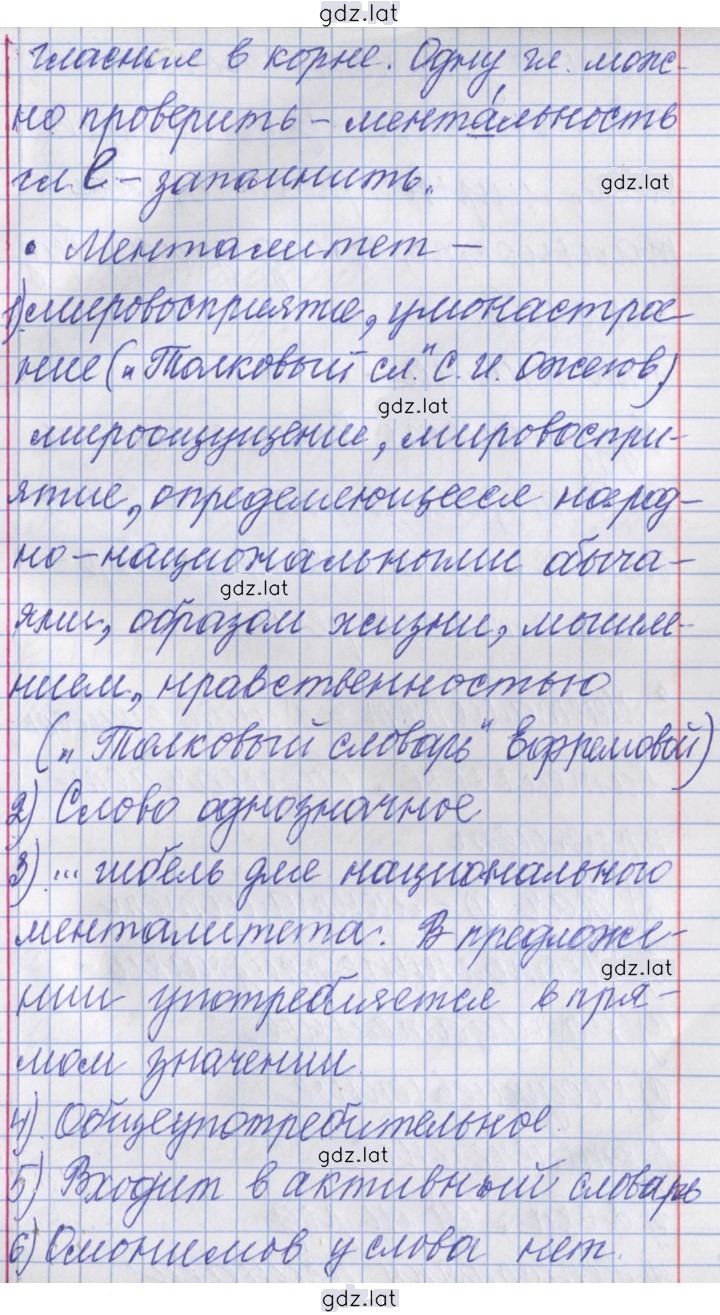 gdz.lat
гласная в корне. Одну гл. мож-
но проверить – мента́льность
гл. е – запомнить.
gdz.lat
• Менталитет –
1) мировосприятие, умонастрое
ние („Толковый сл." С. И. Ожегов)
gdz.lat
мироощущение, мировоспри-
ятие, определяющееся народ-
но-национальными обыча-
gdz.lat
ями, образом жизни, мышле-
нием, нравственностью
(„Толковый словарь" Ефремовой)
2) Слово однозначное
3) ... гибель для национального
менталитета. В предложе-
gdz.lat
нии употребляется в пря-
мом значении.
4) Общеупотребительное.
gdz.lat
5) Входит в активный словарь
6) Омонимов у слова нет.
gdz.lat